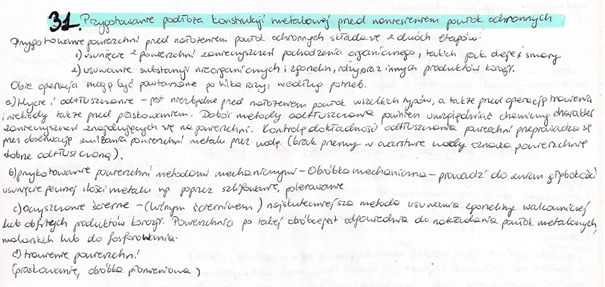 31. Przygotowanie podłoża konstrukcji metalowej przed naniesieniem powłok ochronnych
Przygotowanie powierzchni przed nałożeniem powłok ochronnych składa się z dwóch etapów:
1) usunięcie z powierzchni zanieczyszczeń pochodzenia organicznego, takich jak oleje i smary
2) usuwanie substancji nieorganicznych i zgorzelin, rdzy oraz innych produktów korozji.
Obie operacje mogą być powtarzane po kilka razy, według potrzeb.
a) Mycie i odtłuszczanie - jest niezbędne przed nałożeniem powłok wszelkich typów, a także przed operacją trawienia
i niekiedy także przed piaskowaniem. Dobór metody odtłuszczania powinien uwzględniać chemiczny charakter
zanieczyszczeń znajdujących się na powierzchni. Kontrolę dokładności odtłuszczania powierzchni przeprowadza się
przez obserwację zwilżania powierzchni metalu przez wodę. (brak przerwy w warstwie wody oznacza powierzchnię
dobrze odtłuszczoną).
b) przygotowanie powierzchni metodami mechanicznymi - Obróbka mechaniczna - prowadzi do zmian głębokości
usunięcie pewnej ilości metalu np poprzez szlifowanie, polerowanie
c) oczyszczanie ścierne - (luźnym ścierniwem) najskuteczniejsza metoda usuwania zgorzeliny walcowniczej
lub obfitych produktów korozji. Powierzchnia po takiej obróbce jest odpowiednia do nakładania powłok metalowych,
malarskich lub do fosforanowania.
d) trawienie powierzchni
(piaskowanie, obróbka płomieniowa)